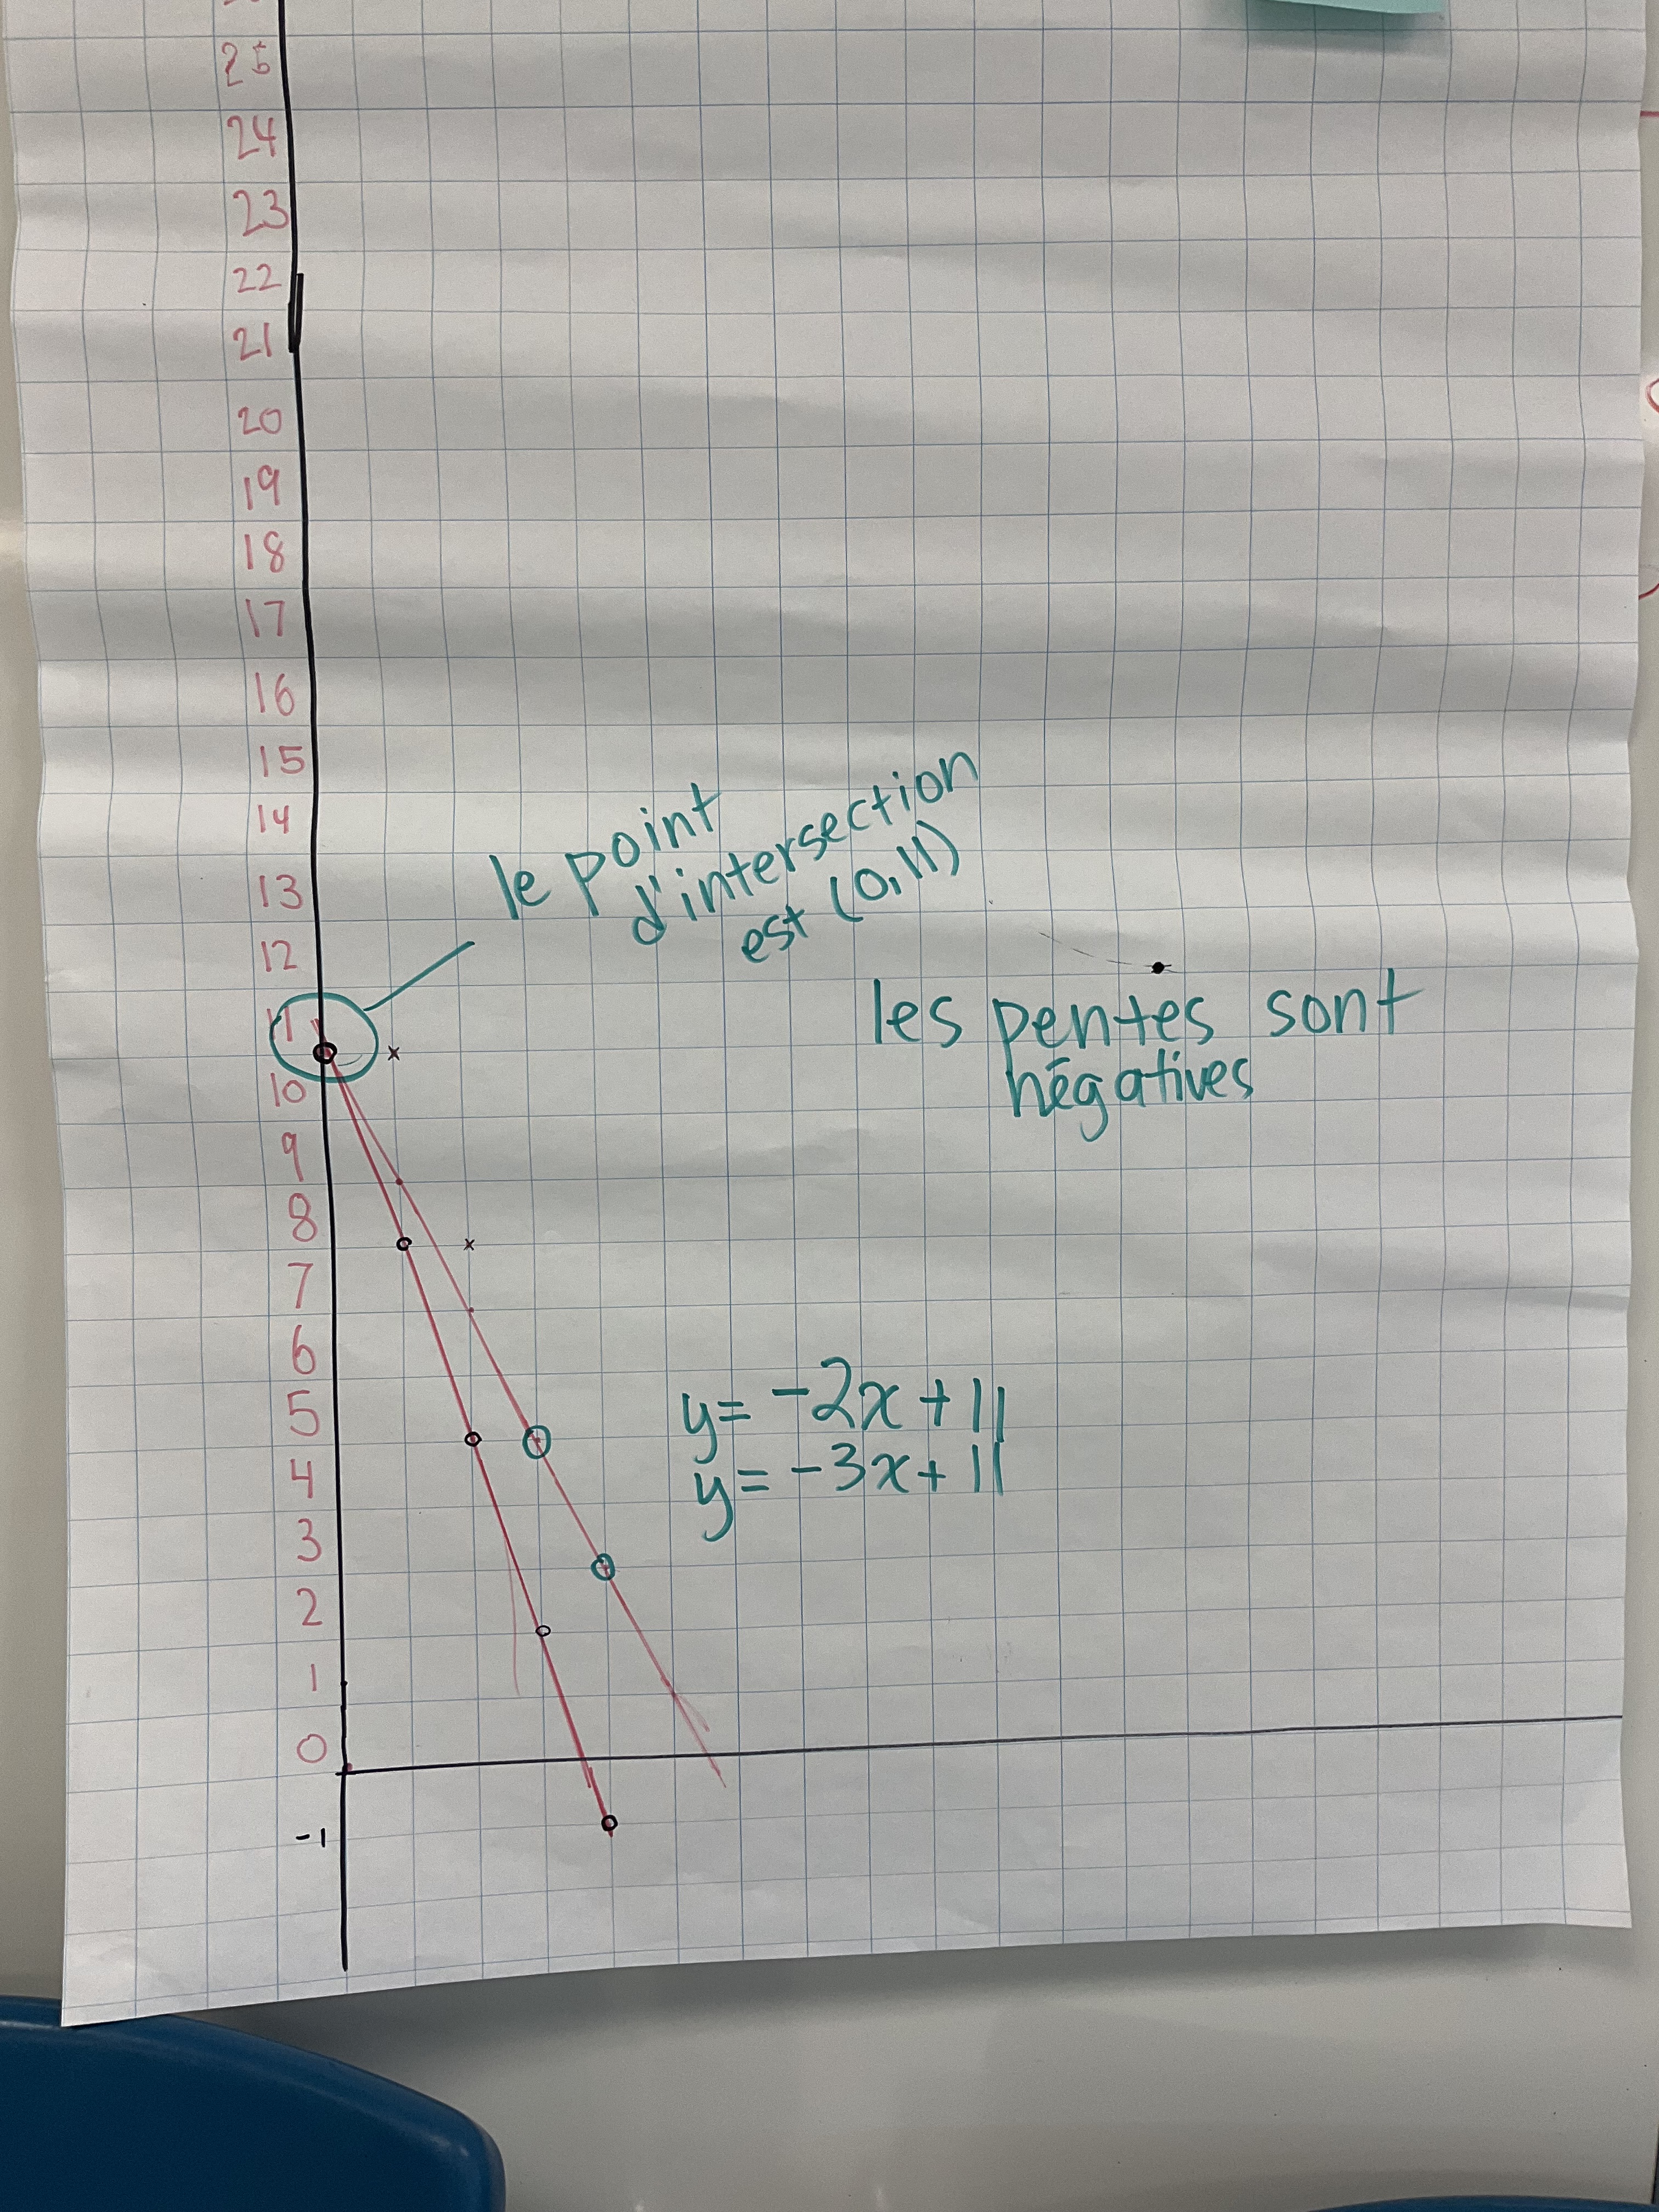 25
24
23
22
21
20
19
18
17
16
15
14
13
12
11
10
9
8
7
6
5
4
3
2
1
0
-1
le point
d'intersection
est (0,11)
les pentes sont
négatives
y= -2x+11
y= -3x+11